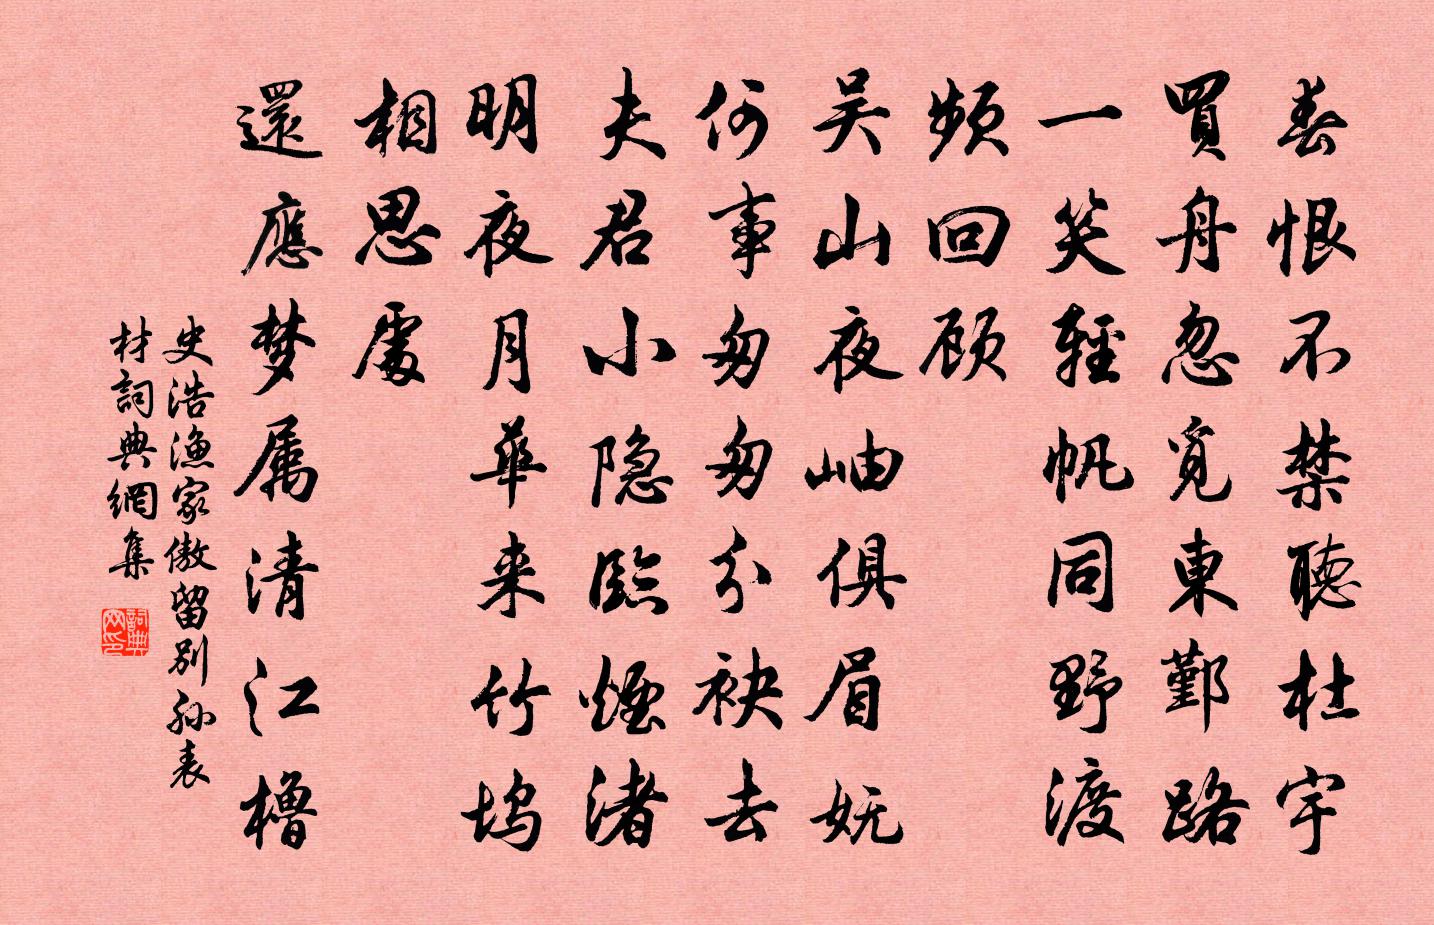 春恨不禁聽杜宇
買舟忽覓東鄞路
一笑輕帆同野渡
頻回顾
吴山夜岫俱眉妩
何事匆匆分袂去
夫君小隐臨煙渚
明夜月華来竹坞
相思處
還應梦属清江櫓
史浩漁家傲留別孙表
材詞典網集
詞典
网印